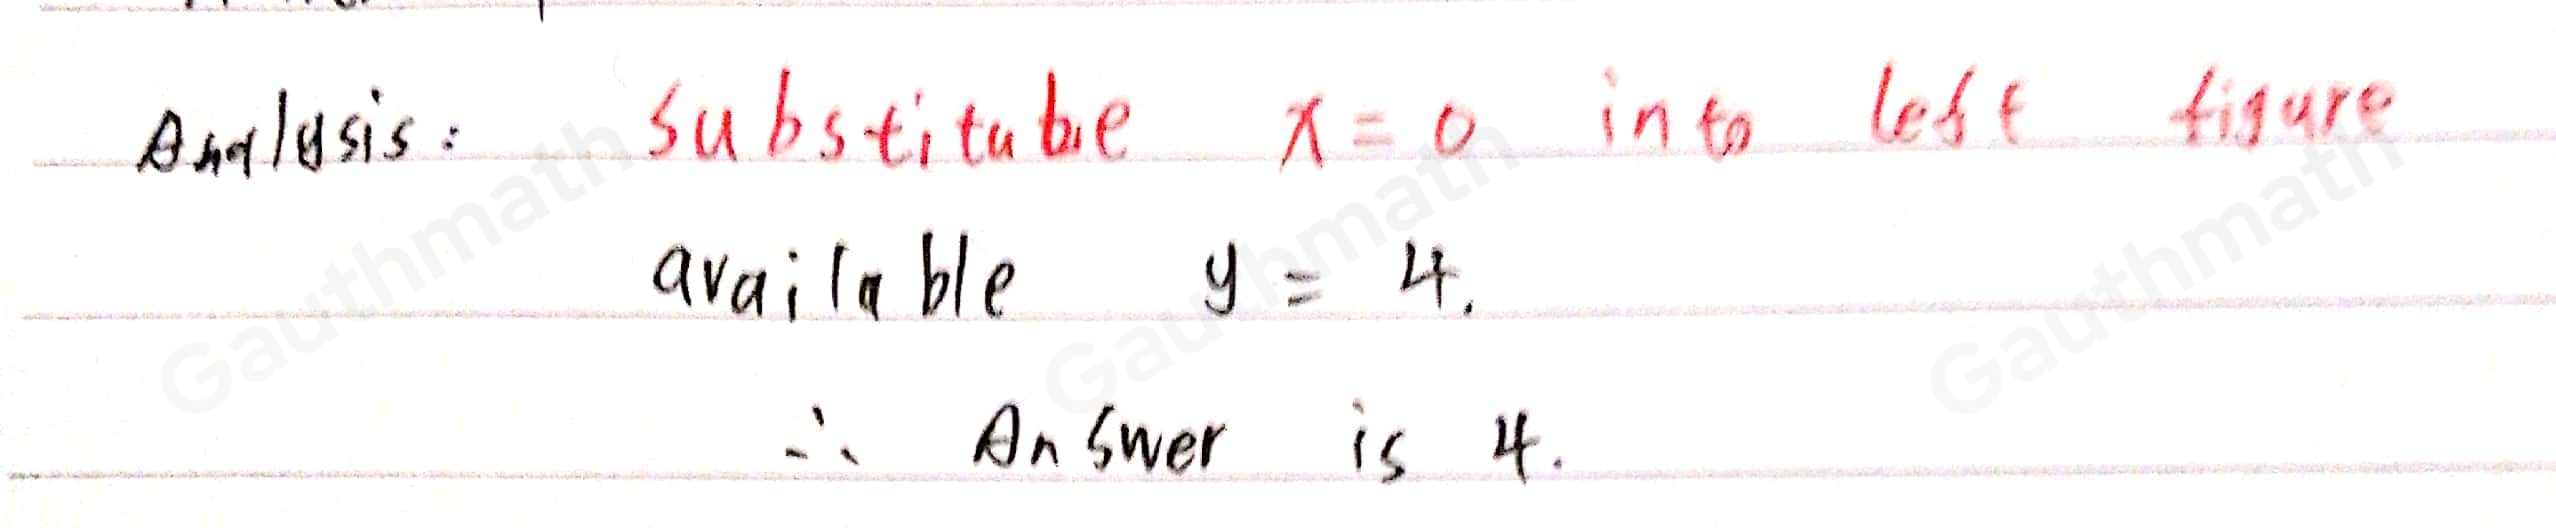 Analysis: substitube x = 0 into left figure
available y = 4.
∴ Answer is 4.
Gauthmath Gauthmath Gauthmath